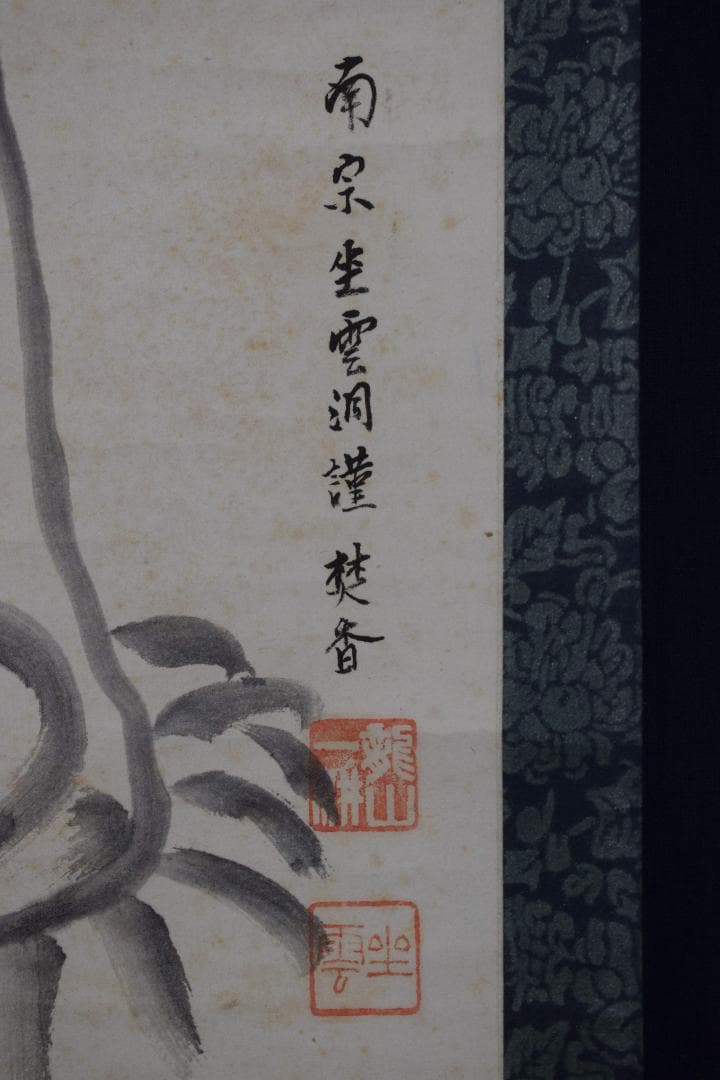 南宗坐雲洞謹焚香
龍山
坐
雲